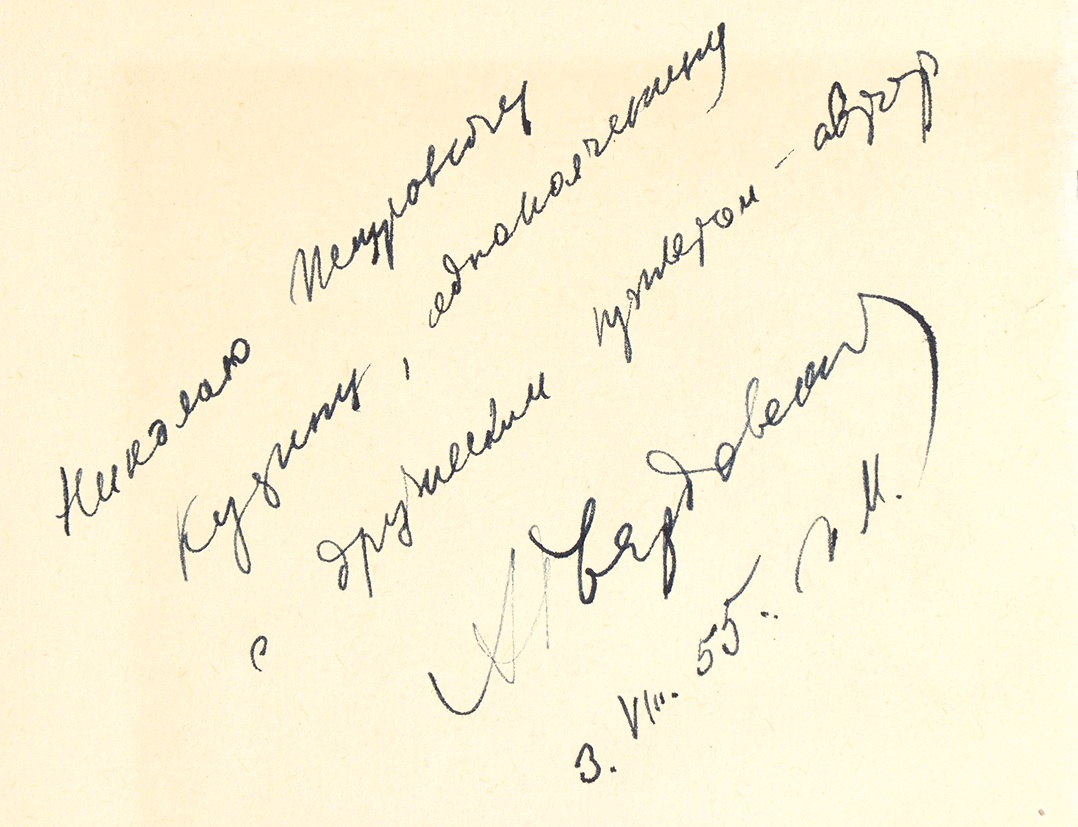 Николаю Петровичу
Кузину, однополчанину
с дружеским приветом – автор
А Вердовский
3. VIII. 55. г. М.